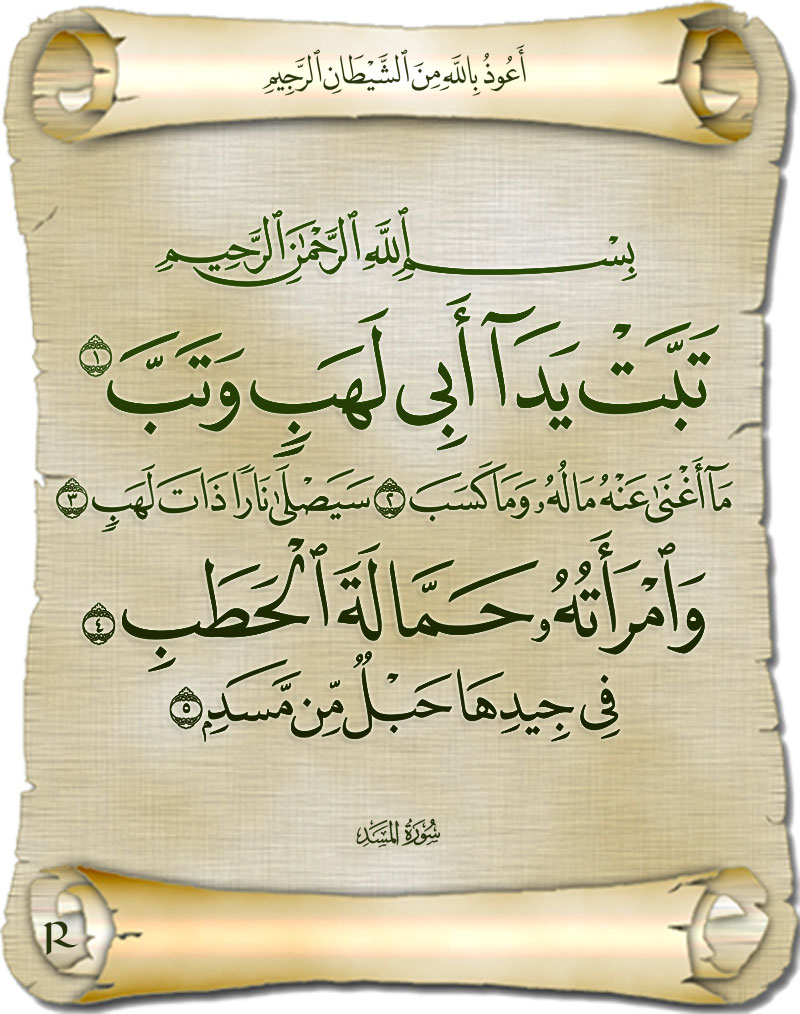 أَعُوذُ بِاللَّهِ مِنَ ٱلشَّيْطَانِ ٱلرَّجِيمِ
بِسْمِ ٱللَّهِ ٱلرَّحْمَٰنِ ٱلرَّحِيمِ
تَبَّتْ يَدَآ أَبِي لَهَبٍ وَتَبَّ ١
مَآ أَغْنَىٰ عَنْهُ مَالُهُۥ وَمَا كَسَبَ ٢ سَيَصْلَىٰ نَارًا ذَاتَ لَهَبٍ ٣
وَٱمْرَأَتُهُۥ حَمَّالَةَ ٱلْحَطَبِ ٤
فِي جِيدِهَا حَبْلٌ مِّن مَّسَدٍ ٥
سُورَةُ المَسَدِ
R